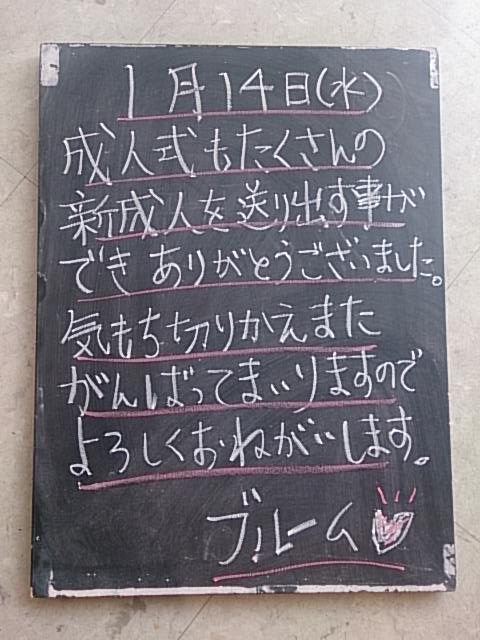 1月14日(水)
成人式もたくさんの
新成人を送り出す事が
でき ありがとうございました。
気もち切りかえまた
がんばってまいりますので
よろしくおねがいします。
ブルーム